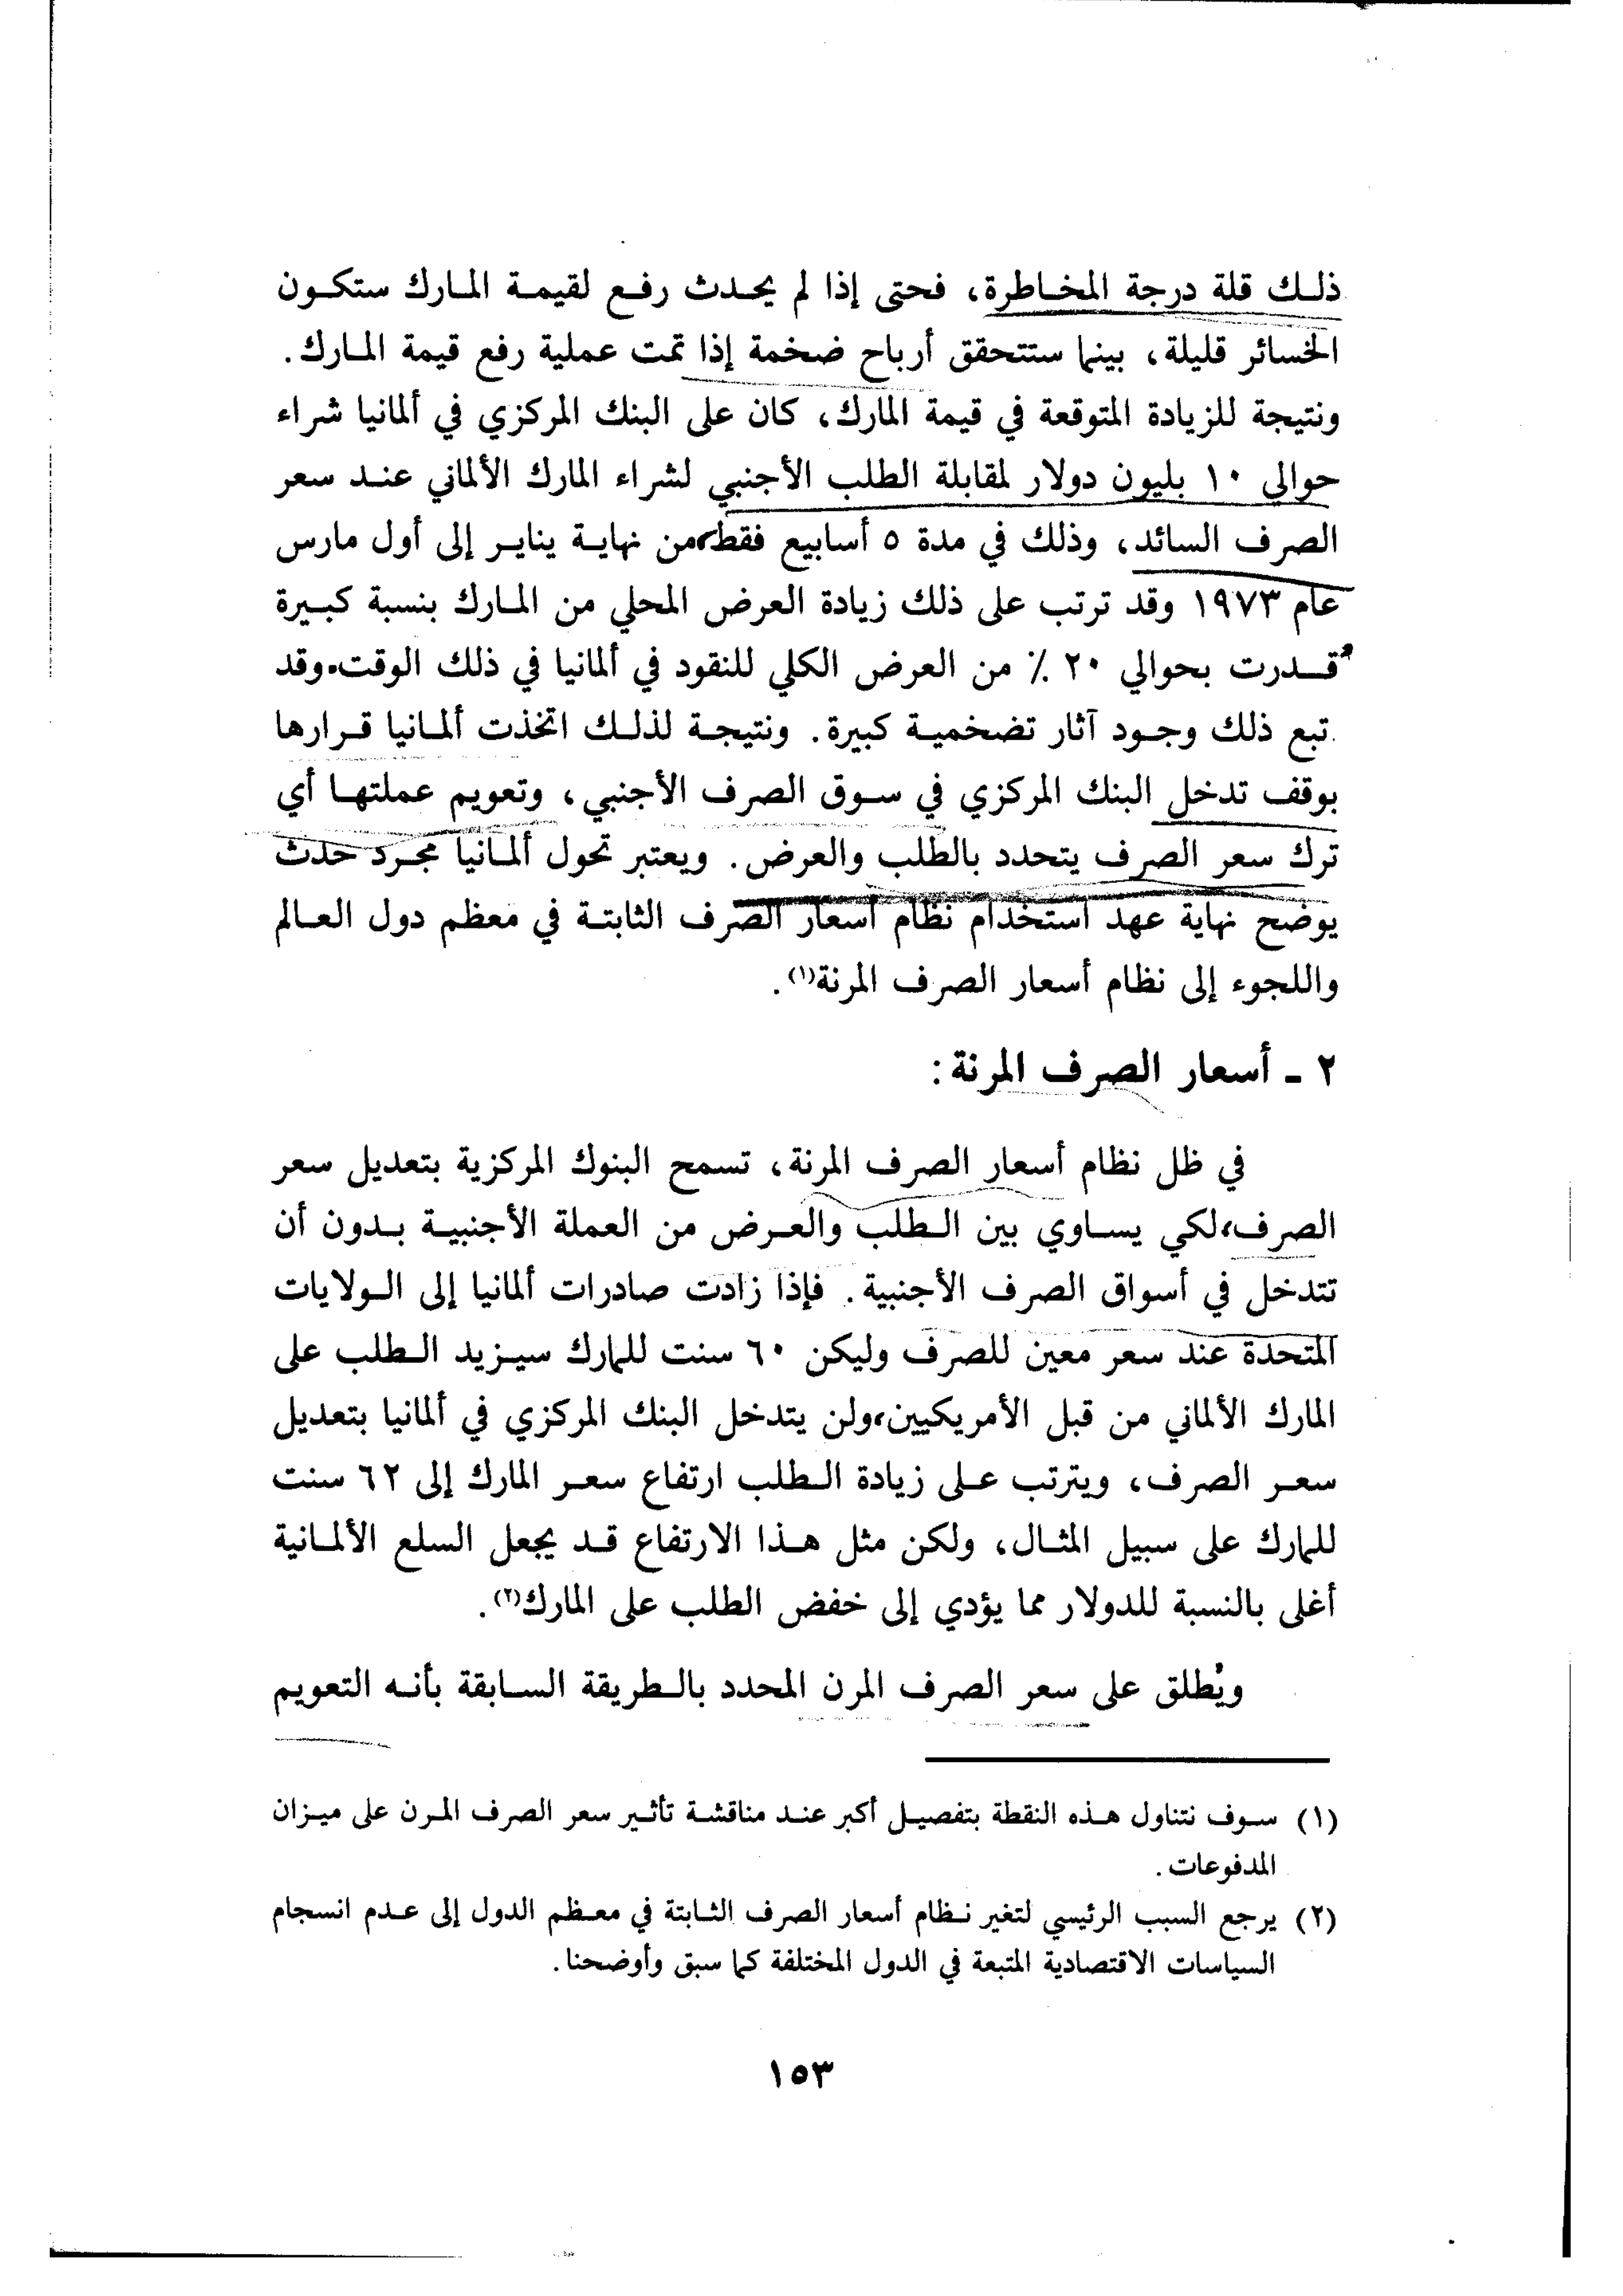 ذلك قلة درجة المخاطرة، فحتى إذا لم يحدث رفع لقيمة المارك ستكون
الخسائر قليلة، بينما ستتحقق أرباح ضخمة إذا تمت عملية رفع قيمة المارك.
ونتيجة للزيادة المتوقعة في قيمة المارك، كان على البنك المركزي في ألمانيا شراء
حوالي ١٠ بليون دولار لمقابلة الطلب الأجنبي لشراء المارك الألماني عند سعر
الصرف السائد، وذلك في مدة ٥ أسابيع فقط، من نهاية يناير إلى أول مارس
عام ١٩٧٣ وقد ترتب على ذلك زيادة العرض المحلي من المارك بنسبة كبيرة
قدرت بحوالي ٢٠ ٪ من العرض الكلي للنقود في ألمانيا في ذلك الوقت. وقد
تبع ذلك وجود آثار تضخمية كبيرة. ونتيجة لذلك اتخذت ألمانيا قرارها
بوقف تدخل البنك المركزي في سوق الصرف الأجنبي، وتعويم عملتها أي
ترك سعر الصرف يتحدد بالطلب والعرض. ويعتبر تحول ألمانيا مجرد حدث
يوضح نهاية عهد استخدام نظام أسعار الصرف الثابتة في معظم دول العالم
واللجوء إلى نظام أسعار الصرف المرنة(١).
٢ - أسعار الصرف المرنة:
في ظل نظام أسعار الصرف المرنة، تسمح البنوك المركزية بتعديل سعر
الصرف، لكي يساوي بين الطلب والعرض من العملة الأجنبية بدون أن
تتدخل في أسواق الصرف الأجنبية. فإذا زادت صادرات ألمانيا إلى الولايات
المتحدة عند سعر معين للصرف وليكن ٦٠ سنت للمارك سيزيد الطلب على
المارك الألماني من قبل الأمريكيين، ولن يتدخل البنك المركزي في ألمانيا بتعديل
سعر الصرف، ويترتب على زيادة الطلب ارتفاع سعر المارك إلى ٦٢ سنت
للمارك على سبيل المثال، ولكن مثل هذا الارتفاع قد يجعل السلع الألمانية
أغلى بالنسبة للدولار مما يؤدي إلى خفض الطلب على المارك(٢).
ويُطلق على سعر الصرف المرن المحدد بالطريقة السابقة بأنه التعويم
(١) سوف نتناول هذه النقطة بتفصيل أكبر عند مناقشة تأثير سعر الصرف المرن على ميزان
المدفوعات.
(٢) يرجع السبب الرئيسي لتغير نظام أسعار الصرف الثابتة في معظم الدول إلى عدم انسجام
السياسات الاقتصادية المتبعة في الدول المختلفة كما سبق وأوضحنا.
١٥٣